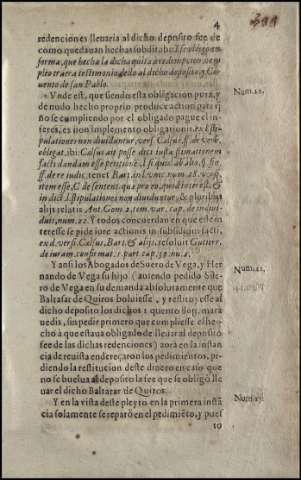 4
redenciones lleuaria al dicho deposito fee de
como quedauan hechas sob ditab⁹. Et se obligo en
forma, que hecha la dicha quita o redempcion
pleo traera testimonio dello al dicho deposito y Con
uento de san Pablo.
Vnde est, que siendo esta obligacion pura, y
de nudo hecho proprio produce action para q̃
no se cumpliendo por el obligado pague el in-
teres, et non implemento obligationis, ex l. sti-
pulationes non diuiduntur, vers. Celsus, ff. de verb.
obligat. ibi: Celsus ait posse dici iusta æstimatione
facti dandam esse petitionẽ,
ff. de re iudic. tenet Bart. in l. num. 28.
item esse, C. de sentent. quæ pro eo, quod interest, &
in dict. l. stipulationes non diuiduntur, & pluribus
alijs relatis, Ant. Gom. 2. tom. var. cap. de indiui-
duis, num. 22. Y todos concuerdan en que este in
teresse se pide iure actionis in subsidium facti,
ex d. versi. Celsus, Bart. & alij, tesoluit Gutier.
de iuram. confirmat. 1. part. cap. 59. nu. 2.
Y ansi los Abogados de Suero de Vega, y Her
nando de Vega su hijo (auiendo pedido Sue
ro de Vega en su demanda absolutamente que
Baltasar de Quiros boluiesse, y restituyesse al
dicho deposito los dichos 1. quento 800g. mara
uedis, sin pedir primero que cumpliesse el he-
cho à que estaua obligado de lleuar al deposito
fee de las dichas redenciones) aora en la instan
cia de reuista endereçaron los pedimientos, pi-
diendo la restitucion deste dinero en caso que
no se buelua al deposito la fee que se obligò lle
uar el dicho Baltasar de Quiros.
Y en la vista deste pleyto en la primera instã
cia solamente se reparò en el pedimiẽto, y pues
to
Num. 21.
Num. 22.
Num. 23.